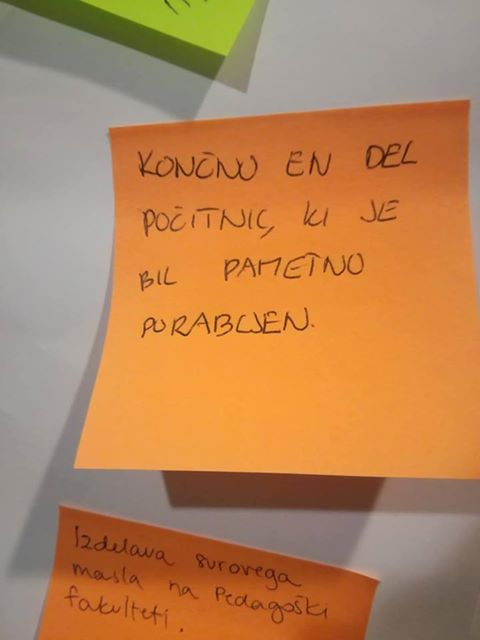 KONČNO EN DEL
POČITNIC, KI JE
BIL PAMETNO
PORABLJEN.
Izdelava surovega
masla na Pedagoški
fakulteti.